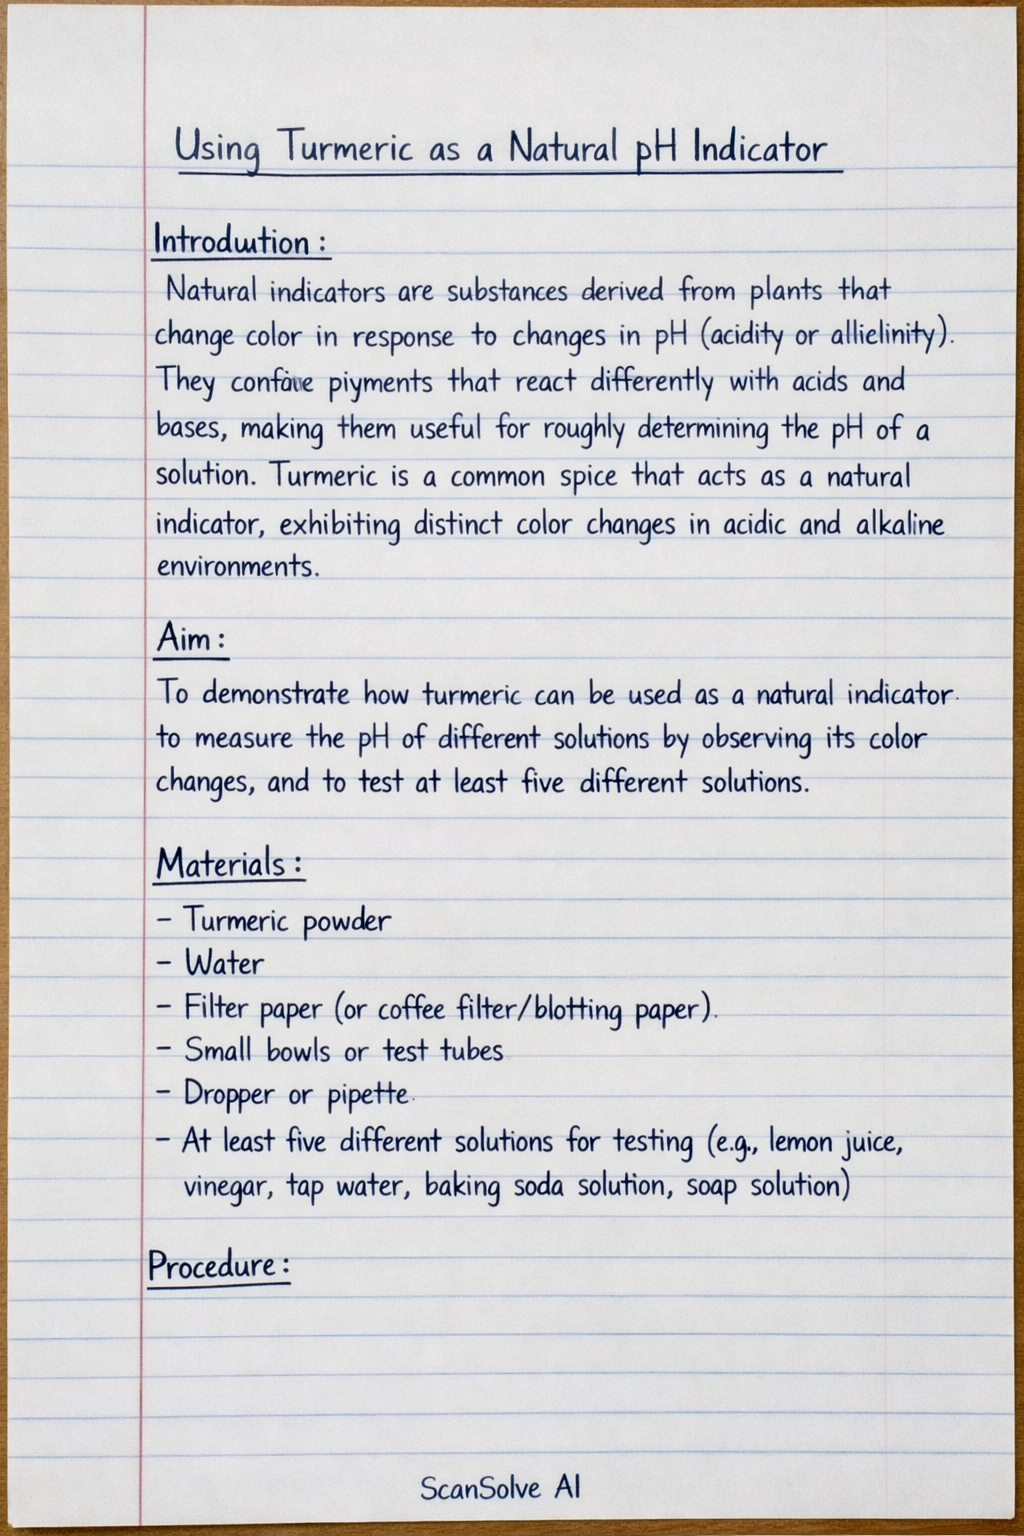 Using Turmeric as a Natural pH Indicator
Introduution:
Natural indicators are substances derived from plants that
change color in response to changes in pH (acidity or allielinity).
They piyments that react differently with acids and
bases, making them useful for roughly determining the pH of a
solution. Turmeric is a common spice that acts as a natural
indicator, exhibiting distinct color changes in acidic and alkaline
environments.
Aim:
To demonstrate how turmeric can be used as a natural indicator
to measure the pH of different solutions by observing its color
changes, and to test at least five different solutions.
Materials:
- Turmeric powder
- Water
- Filter paper (or coffee filter/blotting paper).
- Small bowls or test tubes
- Dropper or pipette.
- At least five different solutions for testing (e.g., lemon juice,
vinegar, tap water, baking soda solution, soap solution)
Procedure:
ScanSolve AI